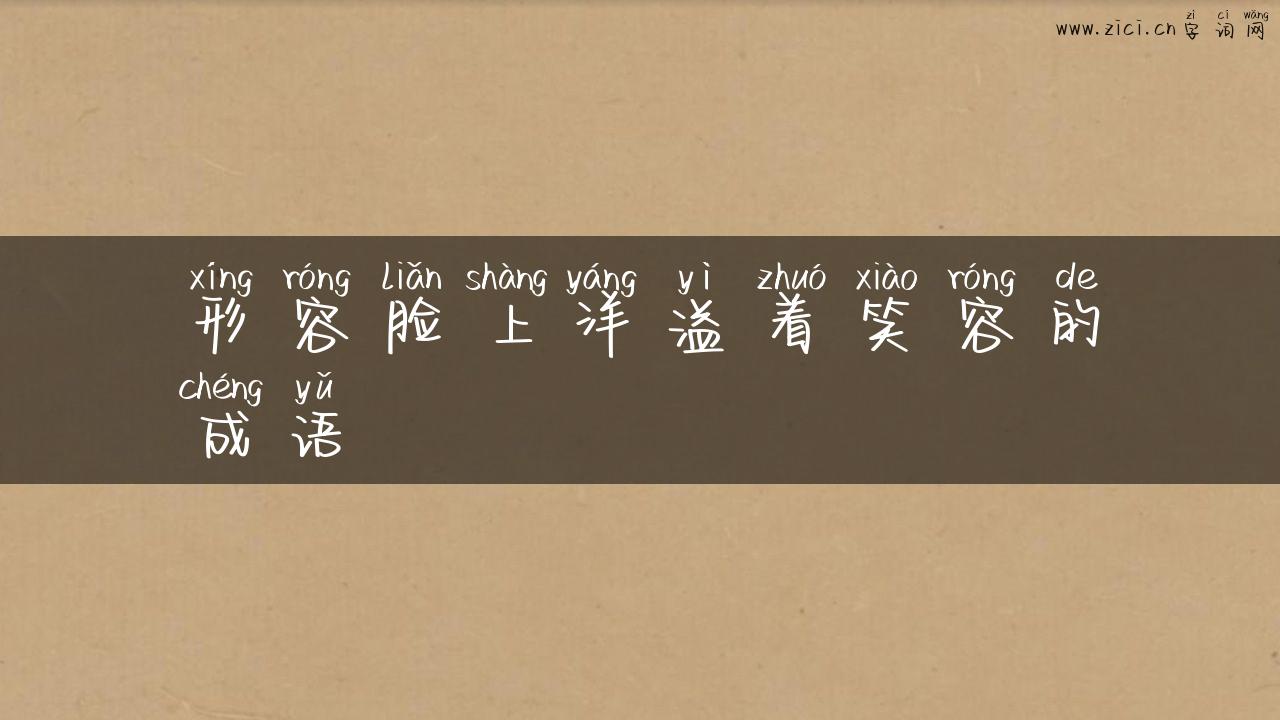 zì cí wǎng
www.zici.cn 字词网
xíng róng liǎn shàng yáng yì zhuó xiào róng de
形容脸上洋溢着笑容的
chéng yǔ
成语